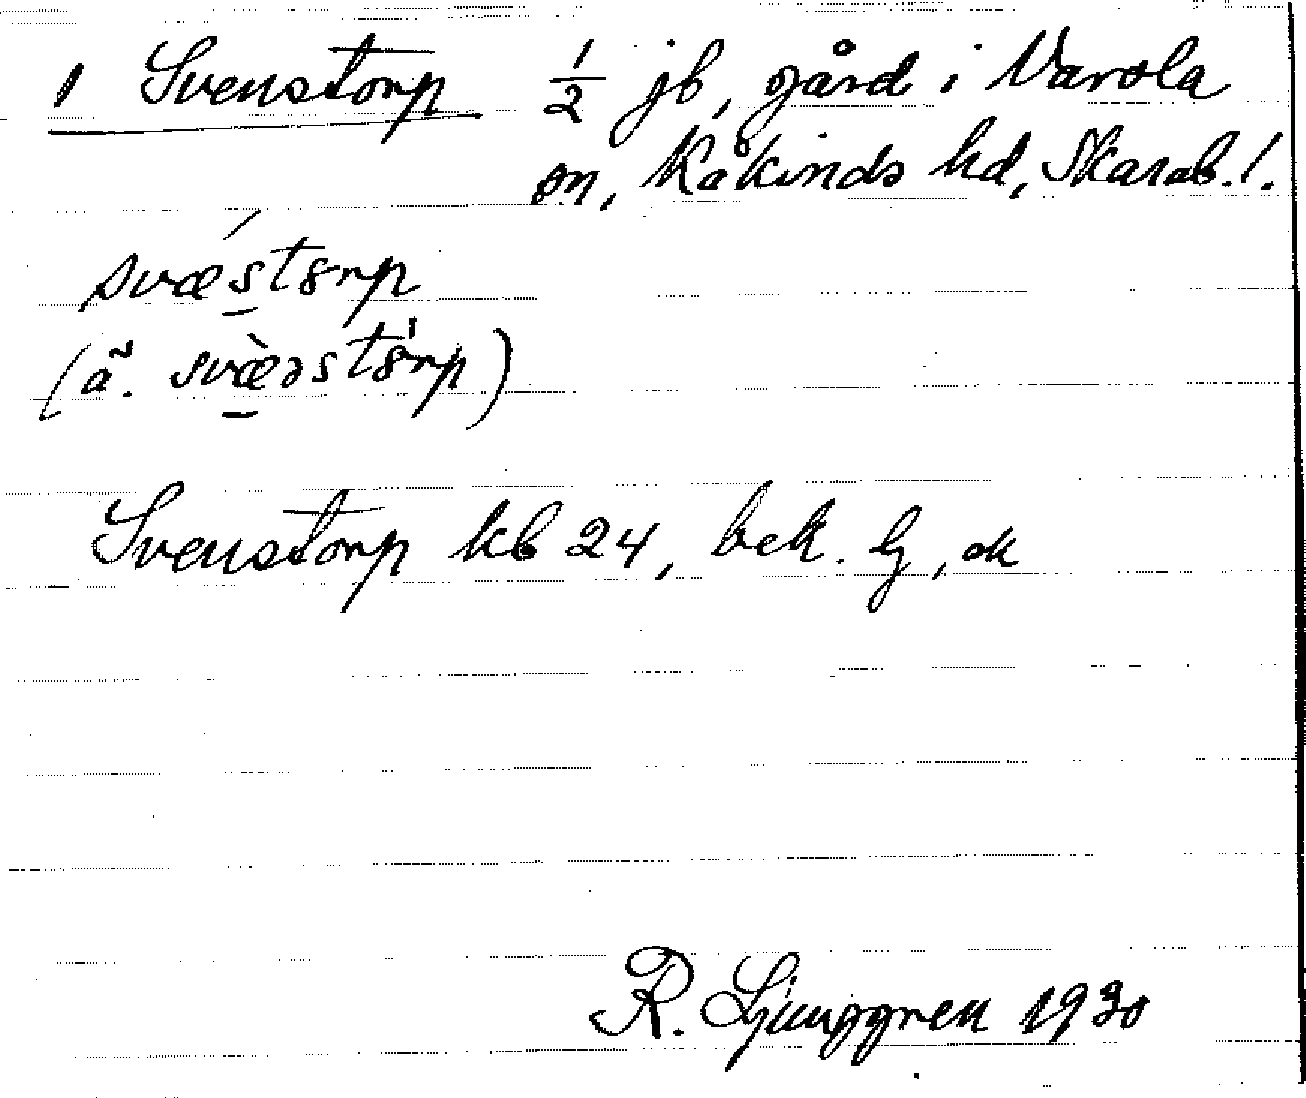 1 Svenstorp ½ jb, gård i Varola
sn, Kåkinds hd, Skarab. l.
svǽ̠st8rp
(ä̃. svæ̠̀əst8̍rp)
Svenstorp kb 24, bek. Lj, ek
R. Ljunggren 1930